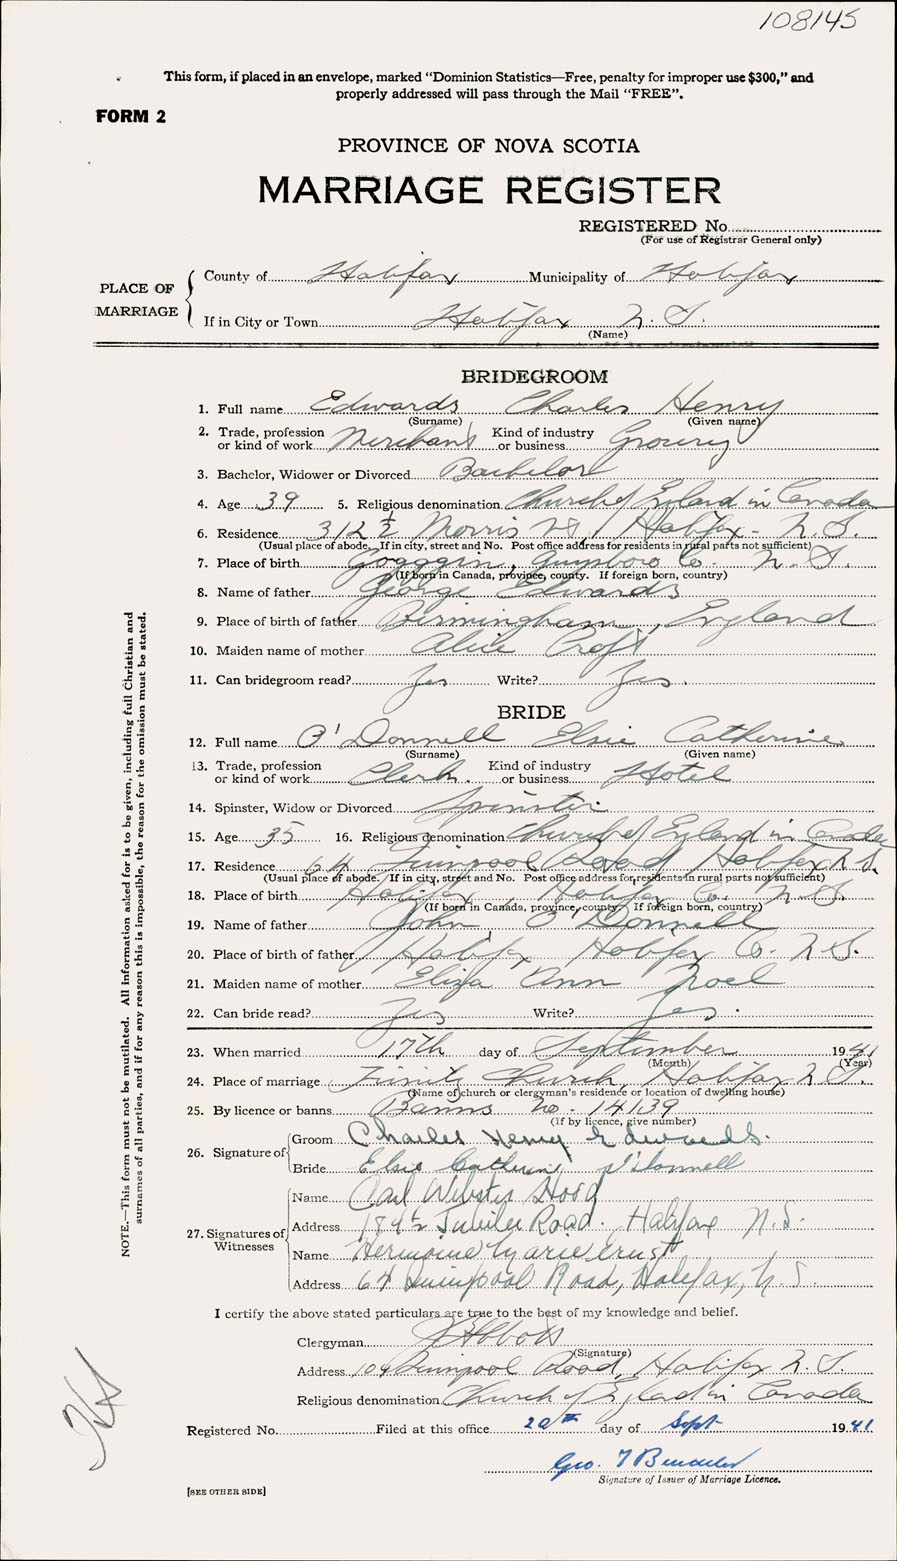 108145
This form, if placed in an envelope, marked "Dominion Statistics—Free, penalty for improper use $300," and
properly addressed will pass through the Mail "FREE".
FORM 2
PROVINCE OF NOVA SCOTIA
MARRIAGE REGISTER
REGISTERED No.
(For use of Registrar General only)
PLACE OF MARRIAGE
County of Halifax Municipality of Halifax
If in City or Town Halifax N. S.
(Name)
BRIDEGROOM
1. Full name Edwards Charles Henry
(Surname) (Given name)
2. Trade, profession or kind of work Merchant Kind of industry or business Grocery
3. Bachelor, Widower or Divorced Bachelor
4. Age 39 5. Religious denomination Church of England in Canada
6. Residence 312½ Morris St, Halifax - N. S.
(Usual place of abode. If in city, street and No. Post office address for residents in rural parts not sufficient)
7. Place of birth Co. N. S.
(If born in Canada, province, county. If foreign born, country)
8. Name of father George Edwards
9. Place of birth of father Birmingham, England
10. Maiden name of mother Alice Croft
11. Can bridegroom read? Yes Write? Yes.
BRIDE
12. Full name O'Donnell Elsie Catherine
(Surname) (Given name)
13. Trade, profession or kind of work Clerk. Kind of industry or business Hotel
14. Spinster, Widow or Divorced Spinster
15. Age 35 16. Religious denomination Church of England in Canada
17. Residence 64 Quinpool Road Halifax N. S.
(Usual place of abode. If in city, street and No. Post office address for residents in rural parts not sufficient)
18. Place of birth Halifax Halifax Co. N. S.
(If born in Canada, province, county. If foreign born, country)
19. Name of father John O'Donnell
20. Place of birth of father Halifax Halifax Co. N. S.
21. Maiden name of mother Eliza Ann
22. Can bride read? Yes Write? Yes.
23. When married 17th day of September 1941
(Month) (Year)
24. Place of marriage Trinity Church, Halifax N. S.
(Name of church or clergyman's residence or location of dwelling house)
25. By licence or banns Banns No. 14139
(If by licence, give number)
26. Signature of
Groom Charles Henry Edwards.
Bride Elsie Catherine O'Donnell
27. Signatures of Witnesses
Name Carl Webster
Address Road. Halifax N.S.
Name Marie
Address 64 Quinpool Road, Halifax, N. S.
I certify the above stated particulars are true to the best of my knowledge and belief.
Clergyman
(Signature)
Address 104 Quinpool Road, Halifax N. S.
Religious denomination Church of England in Canada
Registered No. Filed at this office 20th day of Sept 1941
Geo.
Signature of Issuer of Marriage Licence.
[SEE OTHER SIDE]
NOTE.—This form must not be mutilated. All information asked for is to be given, including full Christian and
surnames of all parties, and if for any reason this is impossible, the reason for the omission must be stated.